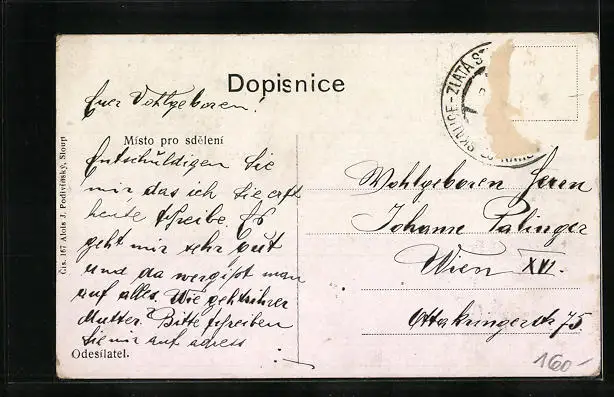 Dopisnice
Euer Wohlgeboren!
Místo pro sdělení
Entschuldigen Sie
mir das ich Sie erst
heute schreibe. Es
geht mir sehr gut
und da vergißt man
auf alles. Wie geht ihrer
Mutter. Bitte schreiben
Sie mir auf adress
Odesílatel.
Čís. 167 Alois J. Podivínský, Sloup
SKALICE-ZLATÁ
Wohlgeboren Herrn
Johann Palinger
Wien XVI.
Ottakringerstr 75.
160-